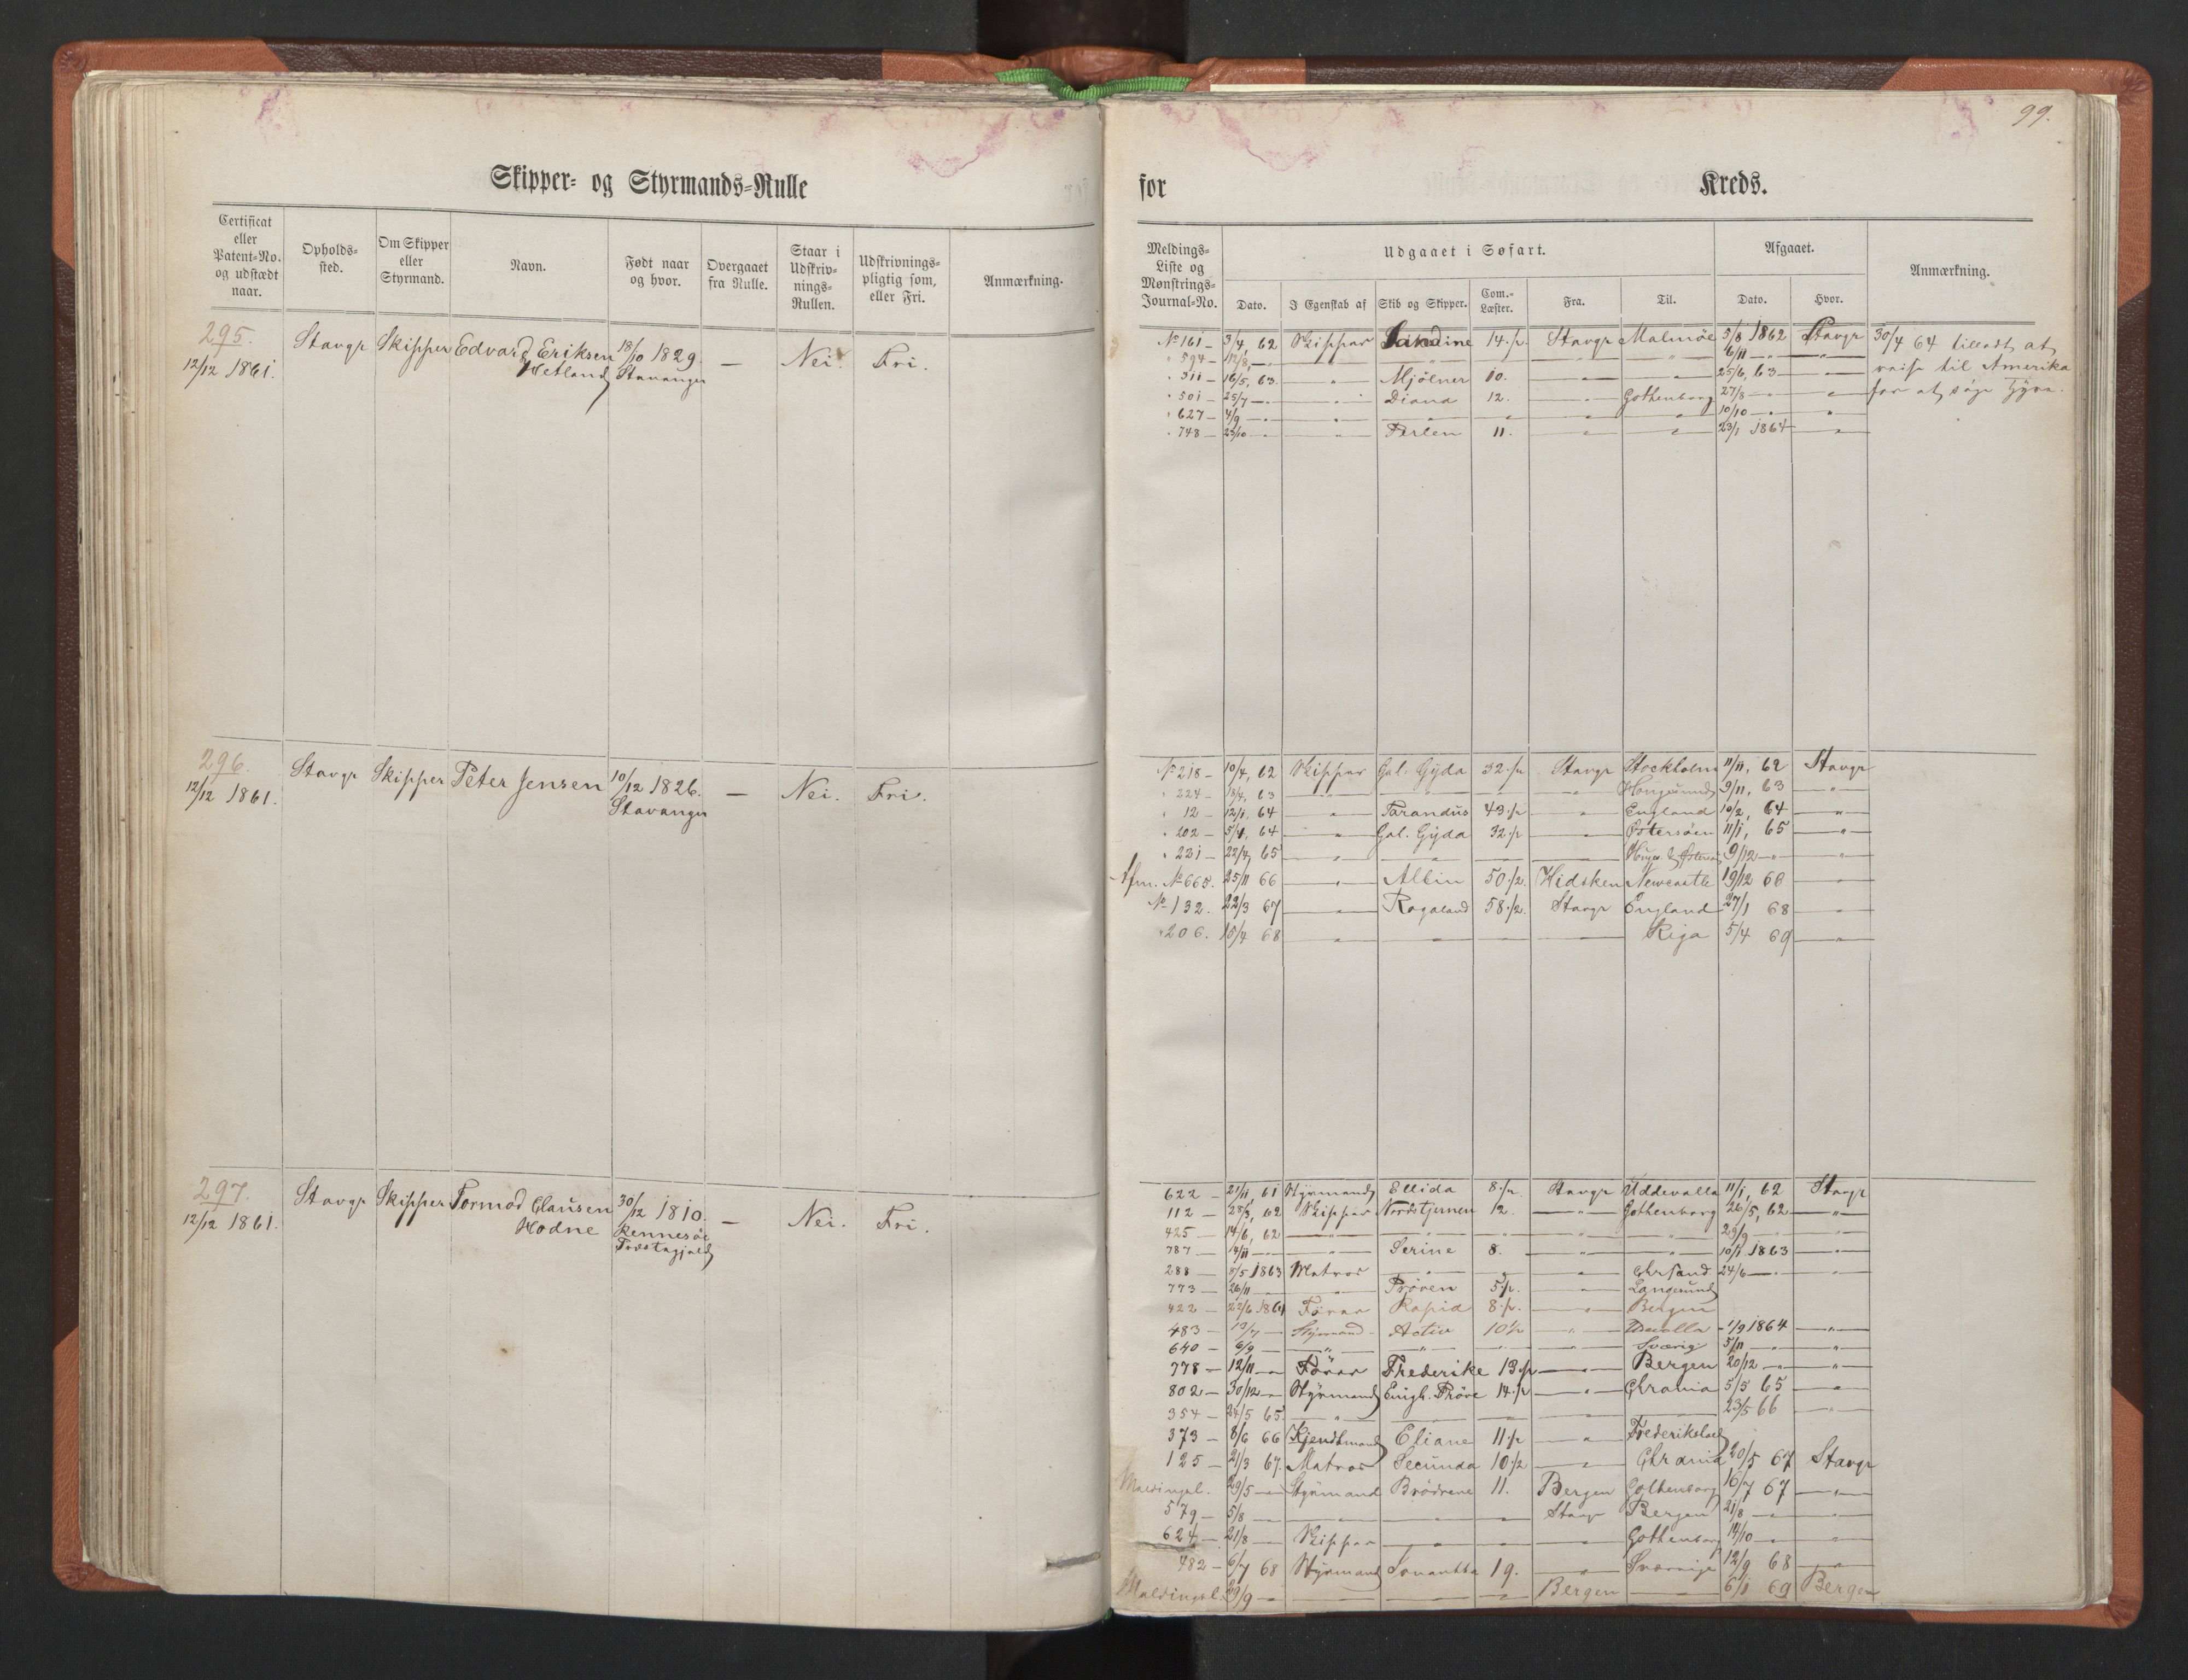 99.
Skipper- og Styrmands-Rulle
for Kreds.
Certificat eller Patent-No. og udstædt naar.
Opholds-sted.
Om Skipper eller Styrmand.
Navn.
Født naar og hvor.
Overgaaet fra Rulle.
Staar i Udskriv-nings-Rullen.
Udskrivnings-pligtig som, eller Fri.
Anmærkning.
Meldings-Liste og Mønstrings-Journal-No.
Udgaaet i Søfart.
Dato.
I Egenskab af
Skib og Skipper.
Com.-Læster.
Fra.
Til.
Afgaaet.
Dato.
Hvor.
Anmærkning.
295.
12/12 1861. Stavgr Skipper Edvard Eriksen 18/10 1829. — Nei. Fri.
Hetland Stavanger
No 161 — 3/4, 62 Skipper 14 Stavgr Malmöe 5/8 1862 Stavgr
594 — 12/8, — 6/11 — —
311 — 16/5, 63. Mjölner 10. 25/6, 63 —
501 — 25/7 — Diana 12. Gothenborg 27/8 —
627 — 4/9 — 10/10 —
748 — 23/10 — Perlen 11. 23/1 1864
30/4 64 tilladt at
reise til Amerika
for at söge Hyre.
296.
12/12 1861. Stavgr Skipper Peter Jensen 10/12 1826. — Nei. Fri.
Stavanger
No 218 — 10/4, 62 Skipper Gal. Gÿda 32 Stavgr Stockholm 11/11, 62 Stavgr
224 — 18/4, 63 9/11, 63
12 — 12/1, 64 Tarandus 43 England 10/2, 64
202 — 5/4, 64 Gal. Gÿda 32 Østersöen 11/1, 65
221 — 22/4, 65 9/12 —
Afm. No 665. 25/11 66 Albin 50 Newcastle 19/12 66
No 132. 22/3 67 Rogaland 58 Stavgr England 27/1 68
206. 15/4 68 Riga 5/4 69
297.
12/12 1861. Stavgr Skipper Tormod Clausen 30/12 1810. — Nei. Fri.
Hodne Rennesöe
Præstegjæld
622 — 21/11, 61 Styrmand Ellida 8 Stavgr Uddevalla 11/1, 62 Stavgr
112 — 28/3, 62 Skipper Nordstjernen 12. Gothenborg 26/5, 62
425 — 14/6, 62 29/9 —
787 — 14/11 — Serine 8. 10/1 1863
288 — 8/5 1863 Matros Chrsand 24/6 —
773 — 26/11 — Pröven 5 Langesund
422 — 22/6 1864 Förer Rapid 8 Bergen
483 — 13/7 — Styrmand Activ 10 1/9 1864
640 — 6/9 — Sverig 5/11 —
778 — 12/11 — Förer Frederike 13 Bergen 20/12 —
802 — 30/12 — Styrmand Enigh. Pröve 14 Chrania 5/5 65
354 — 24/5 65. 23/5 66
373 — 8/6 66 Kjendtmand Eliane 11 Frederikshald
125 — 21/3 67. Matros Secunda 10 Chrania 20/5 67 Stavgr
Meldingsl. 29/5 — Styrmand Brödrene 11. Bergen Gothenborg 16/7 67
579 — 5/8 — Stavgr Bergen 21/8 —
624 — 21/8 — Skipper Gothenborg 14/10 —
482 — 6/7 68 Styrmand 19. Sverrige 12/9 68
Meldingsl. 29/9 — Bergen 6/1 69 Bergen